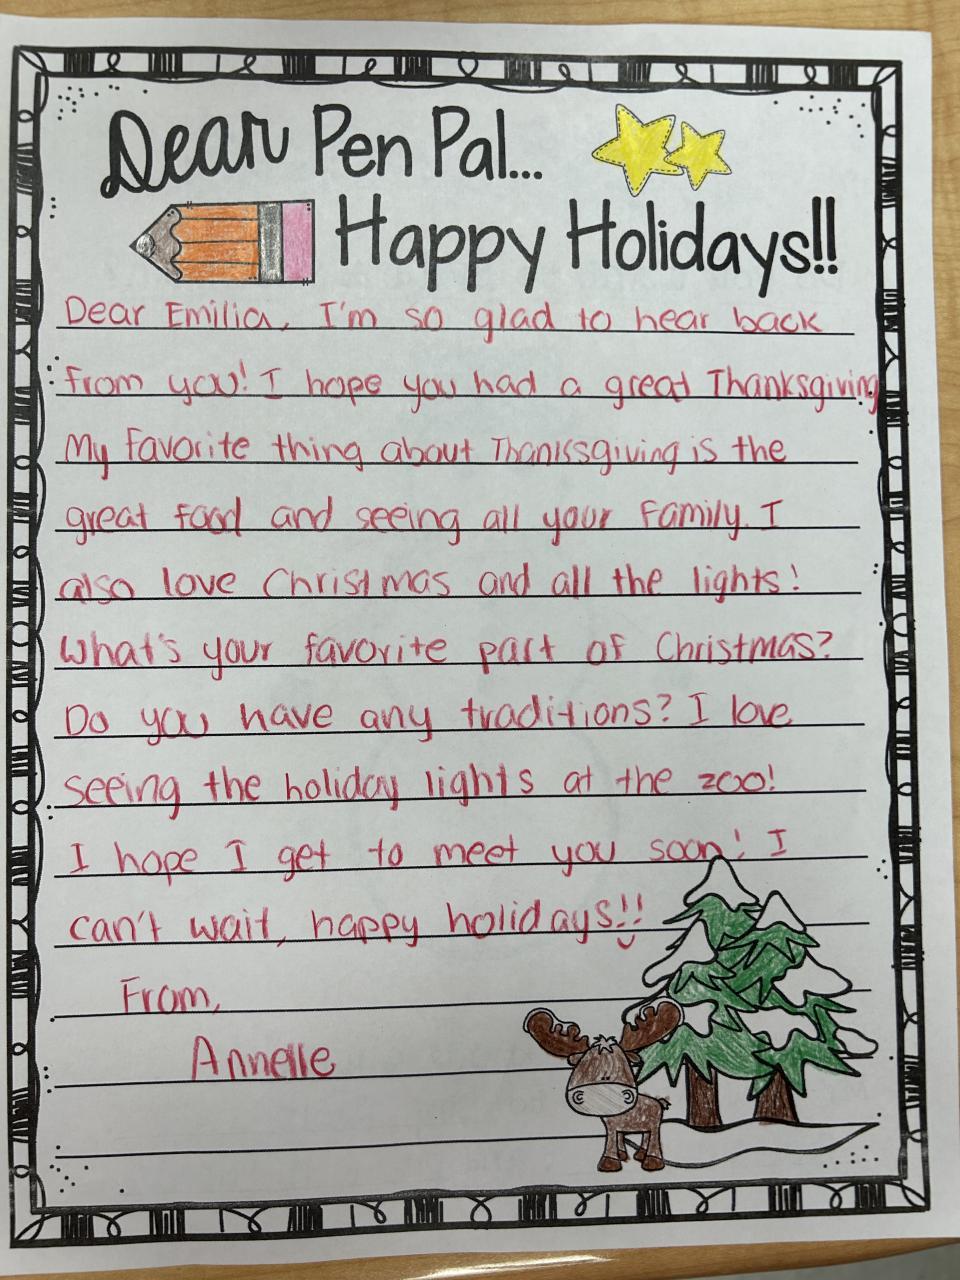 Dear Pen Pal...
Happy Holidays!!
Dear Emilia, I'm so glad to hear back
from you! I hope you had a great Thanksgiving
My favorite thing about Thanksgiving is the
great food and seeing all your family. I
also love Christmas and all the lights!
What's your favorite part of Christmas?
Do you have any traditions? I love
seeing the holiday lights at the zoo!
I hope I get to meet you soon! I
can't wait, happy holidays!!
From,
Annelle